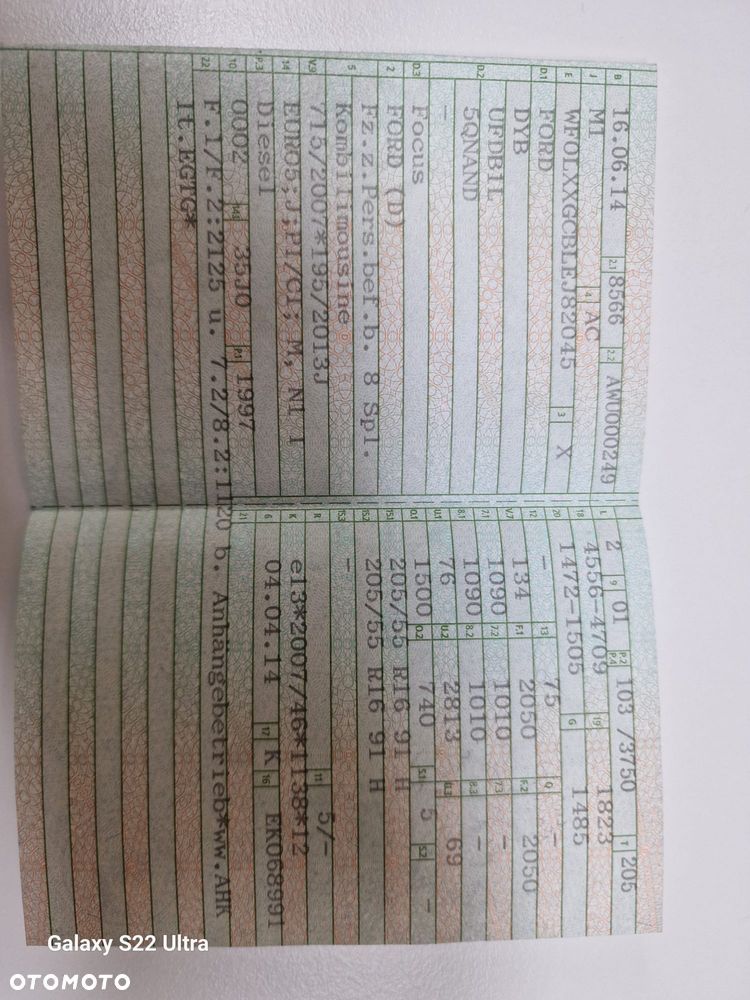 B 16.06.14 2.1 8566 2.2 AWU000249
J M1 4 AC
E WF0LXXGCBLEJ82045 3 X
D.1 FORD
DYB
D.2 UFDB1L
5QNAND
-
D.3 Focus
2 FORD (D)
Fz.z.Pers.bef.b. 8 Spl.
5 Kombilimousine
V.9 715/2007*195/2013J
14 EURO5;J;PI/CI; M, N1 I
P.3 Diesel
10 0002 14.1 35J0 P.1 1997
22 F.1/F.2:2125 u. 7.2/8.2:1120 b. Anhängebetrieb*ww.AHK
lt.EGTG*
L 2 9 01 P.2 P.4 103 /3750 T 205
18 4556-4709 19 1823
20 1472-1505 G 1485
12 - 13 75 Q -
V.7 134 F.1 2050 F.2 2050
7.1 1090 7.2 1010 7.3 -
8.1 1090 8.2 1010 8.3 -
U.1 76 U.2 2813 U.3 69
O.1 1500 O.2 740 S.1 5 S.2 -
15.1 205/55 R16 91 H
15.2 205/55 R16 91 H
15.3 -
R 11 5/-
K e13*2007/46*1138*12
6 04.04.14 17 K 16 EK068991
21
Galaxy S22 Ultra
OTOMOTO